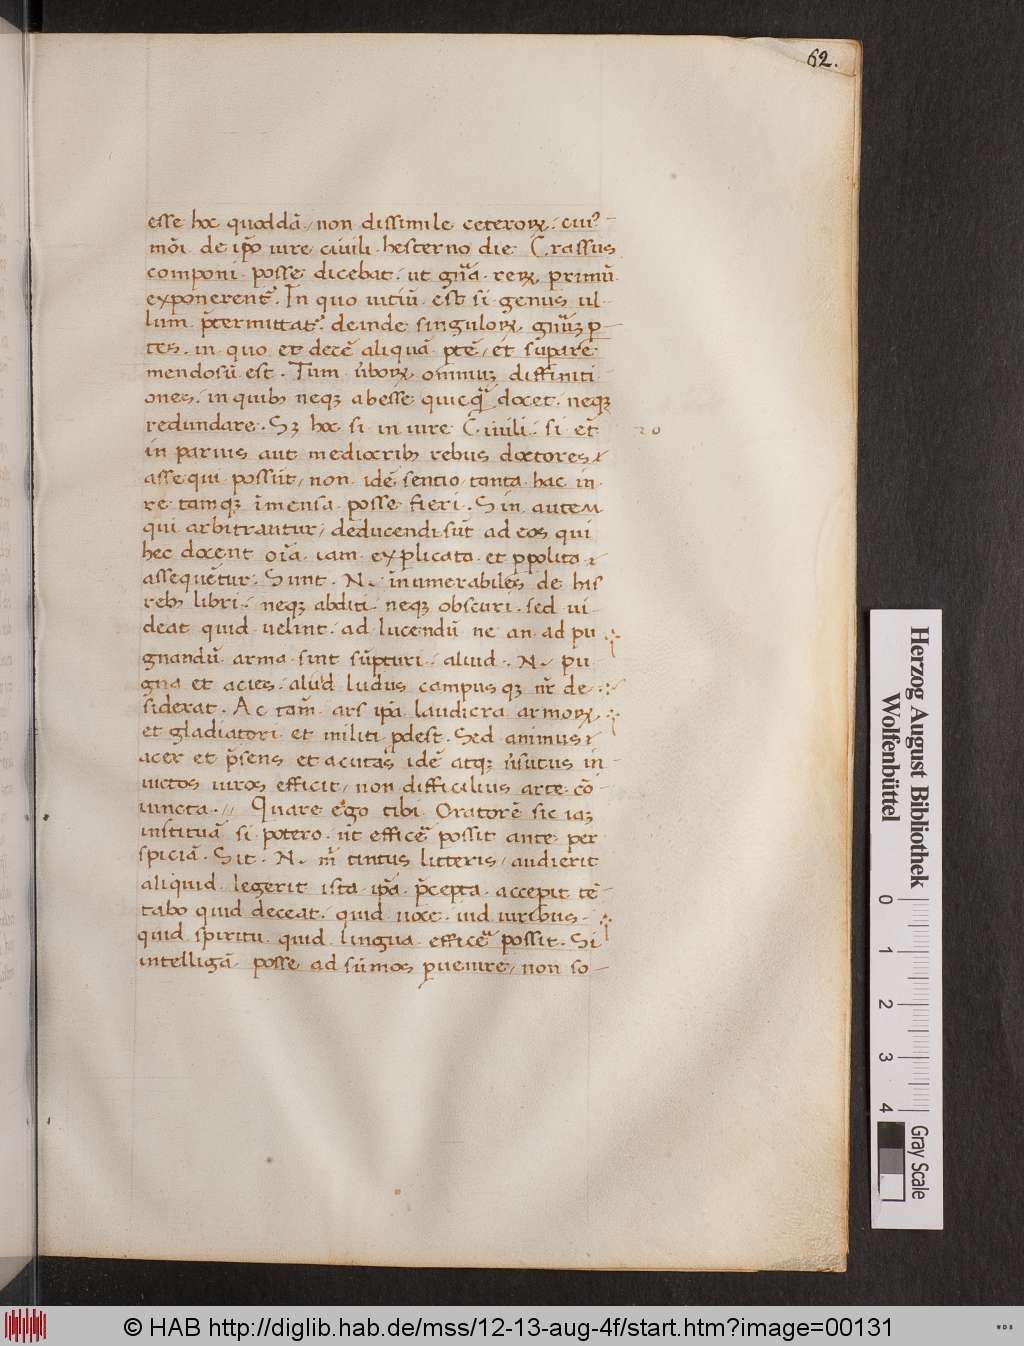 62.
esse hoc quoddã / non dissimile ceteroꝝ. cuiꝰ-
mõi de ip̃o iure ciuili hesterno die Crassus
componi posse dicebat. ut gñã reꝝ primũ
exponerent᷑. In quo uitiũ est si genus ul-
lum p̃termittat᷑. deinde singuloꝝ gñuʒ p-
tes. in quo et deeẽ aliquã ptẽ / et sũpare
mendosũ est. Tum ũboꝝ omniuʒ diffiniti
ones. in quibꝫ neqꝫ abesse quicq̃ docet. neqꝫ
redundare. Sꝫ hoc si in iure Ciuili. si et
in paruis aut mediocribꝫ rebus doctores
assequi possũt / non idẽ sentio tanta hac in
re tamqꝫ ĩmensa posse fieri. Sin autem
qui arbitrantur / deducendi sũt ad eos qui
hec docent oĩa iam explicata et ꝑpolita
assequẽtur. Sunt .N. ĩnumerabiles de his
rebꝫ libri. neqꝫ abditi neqꝫ obscuri. sed ui-
deat quid uelint. ad lucendũ ne an ad pu
gnandũ arma sint sũpturi. aliud .N. pu
gna et acies. aliud ludus campusqꝫ nr̃ de-
siderat. Ac tam̃ ars ip̃a laudicra armoꝝ
et gladiatori et militi ꝓdest. Sed animus
acer et p̃sens et acutus idẽ atqꝫ ũsutus in
uictos uiros efficit / non difficilius arte cõ
iuncta. // Quare ego tibi Oratorẽ sic iaʒ
instituã si potero. ut efficẽ possit ante per
spiciã. Sit .N. m̃ tintus litteris / audierit
aliquid legerit ista ip̃a p̃cepta accepit tẽ-
tabo quid deceat. quid uoce. uid uiribus
quid spiritu quid lingua efficẽ possit. Si
intelligã posse ad sũmos ꝑuenire / non so-
© HAB http://diglib.hab.de/mss/12-13-aug-4f/start.htm?image=00131
Herzog August Bibliothek
Wolfenbüttel
0 1 2 3 4
Gray Scale